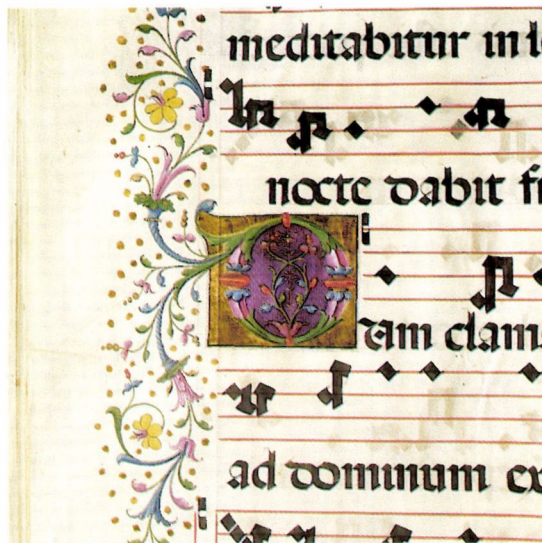 meditabitur in l
nocte dabit fr
Dum clam
ad dominum ex